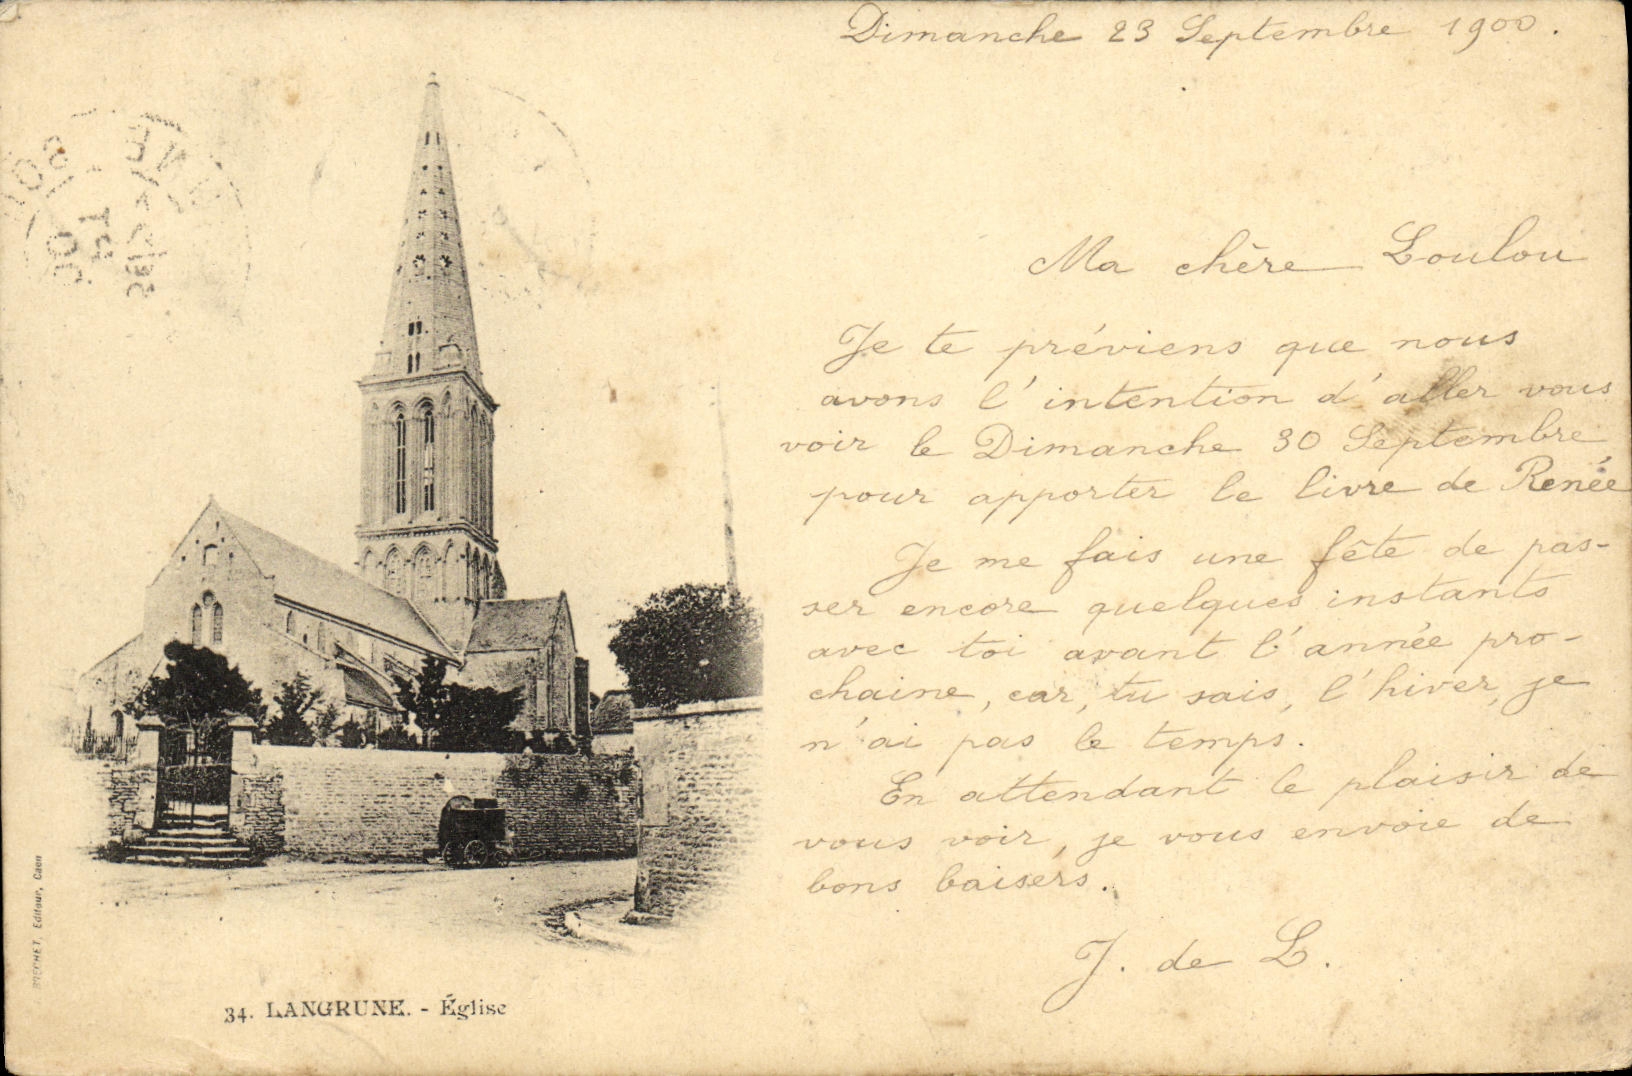 Dimanche 23 Septembre 1900.
Ma chère Loulou
Je te préviens que nous
avons l'intention d'aller vous
voir le Dimanche 30 Septembre
pour apporter le livre de Renée
Je me fais une fête de pas-
ser encore quelques instants
avec toi avant l'année pro-
chaine, car, tu sais, l'hiver, je
n'ai pas le temps.
En attendant le plaisir de
vous voir, je vous envoie de
bons baisers.
J. de L.
34. LANGRUNE. - Église
Editeur, Caen